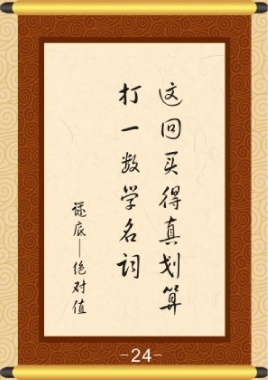 这回买得真划算
打一数学名词
谜底——绝对值
-24-